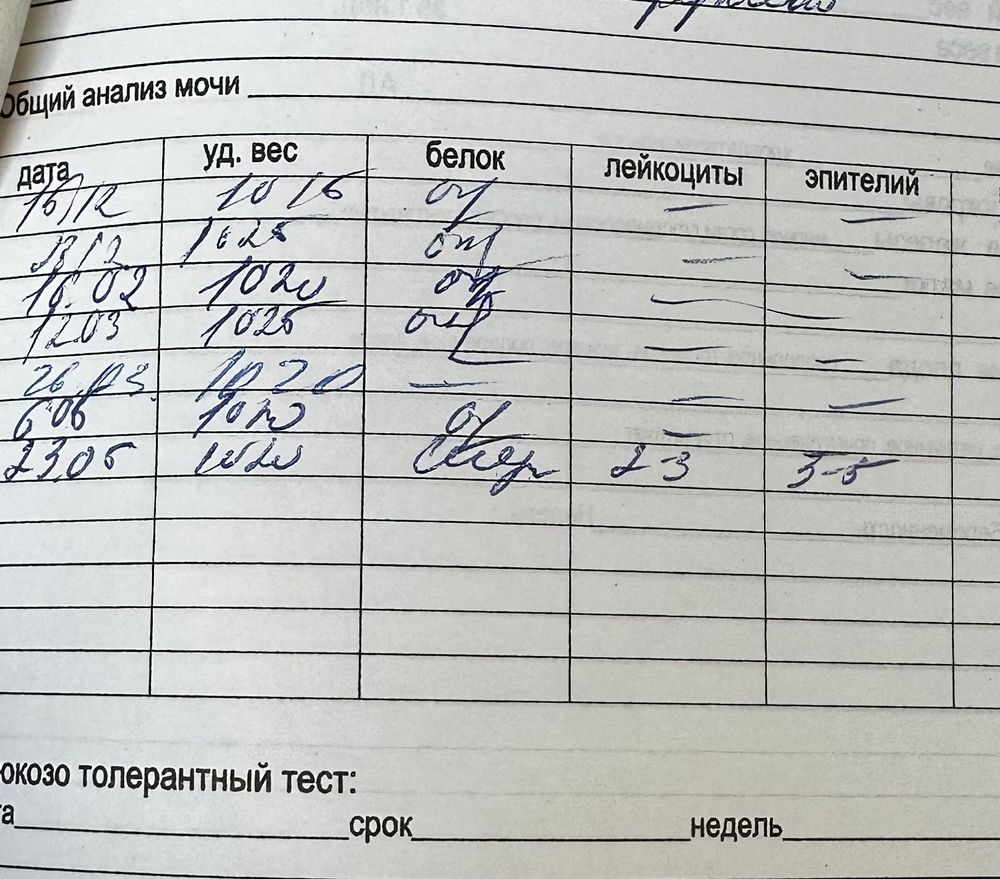 Общий анализ мочи
дата уд. вес белок лейкоциты эпителий
15/12 1015 от — —
1025 от — —
16.02 1020 от — —
12.03 1025 от — —
26.03. 1020 — — —
6.05 1020 от —
23.05 1020 2-3 3-5
юкозо толерантный тест:
та срок недель